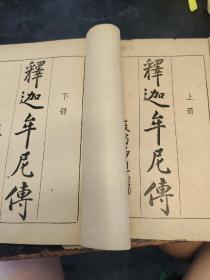 上冊
釋迦牟尼傳
下冊
釋迦牟尼傳